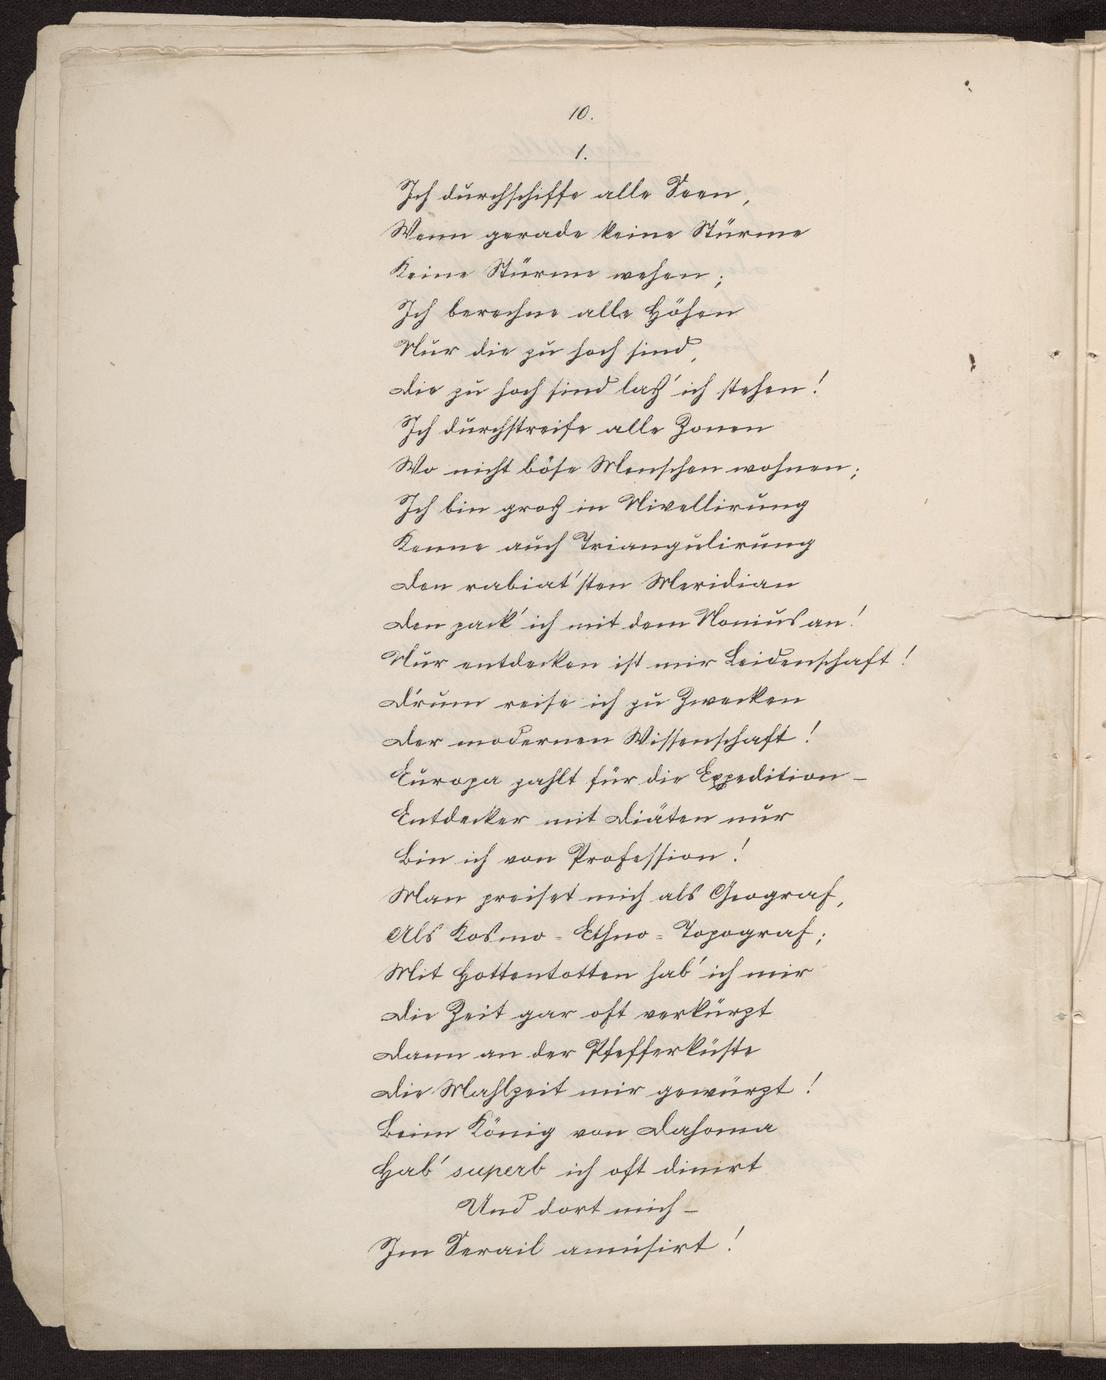 10.
1.
Ich durchschiffe alle Seen,
Wenn gerade keine Stürme
Keine Stürme wehen;
Ich berechne alle Höhen
Nur die zu hoch sind,
Die zu hoch sind laß' ich stehen!
Ich durchstreife alle Zonen
Wo nicht böse Menschen wohnen;
Ich bin groß in Nivellirung
Kenne auch Triangulirung
Den rabiat'sten Meridian
Den pack' ich mit dem Nonius an!
Nur entdecken ist mir Leidenschaft!
D'rum reise ich zu Zwecken
Der modernen Wissenschaft!
Europa zahlt für die Expedition –
Entdecker mit Diäten nur
Bin ich von Profession!
Man preiset mich als Geograf,
Als Kosmo = Ethno = Topograf;
Mit Hottentotten hab' ich mir
Die Zeit gar oft verkürzt
Dann an der Pfefferküste
Die Mahlzeit mir gewürzt!
Beim König von Dahoma
Hab' superb ich oft dinirt
Und dort mich –
Im Serail amüsirt!